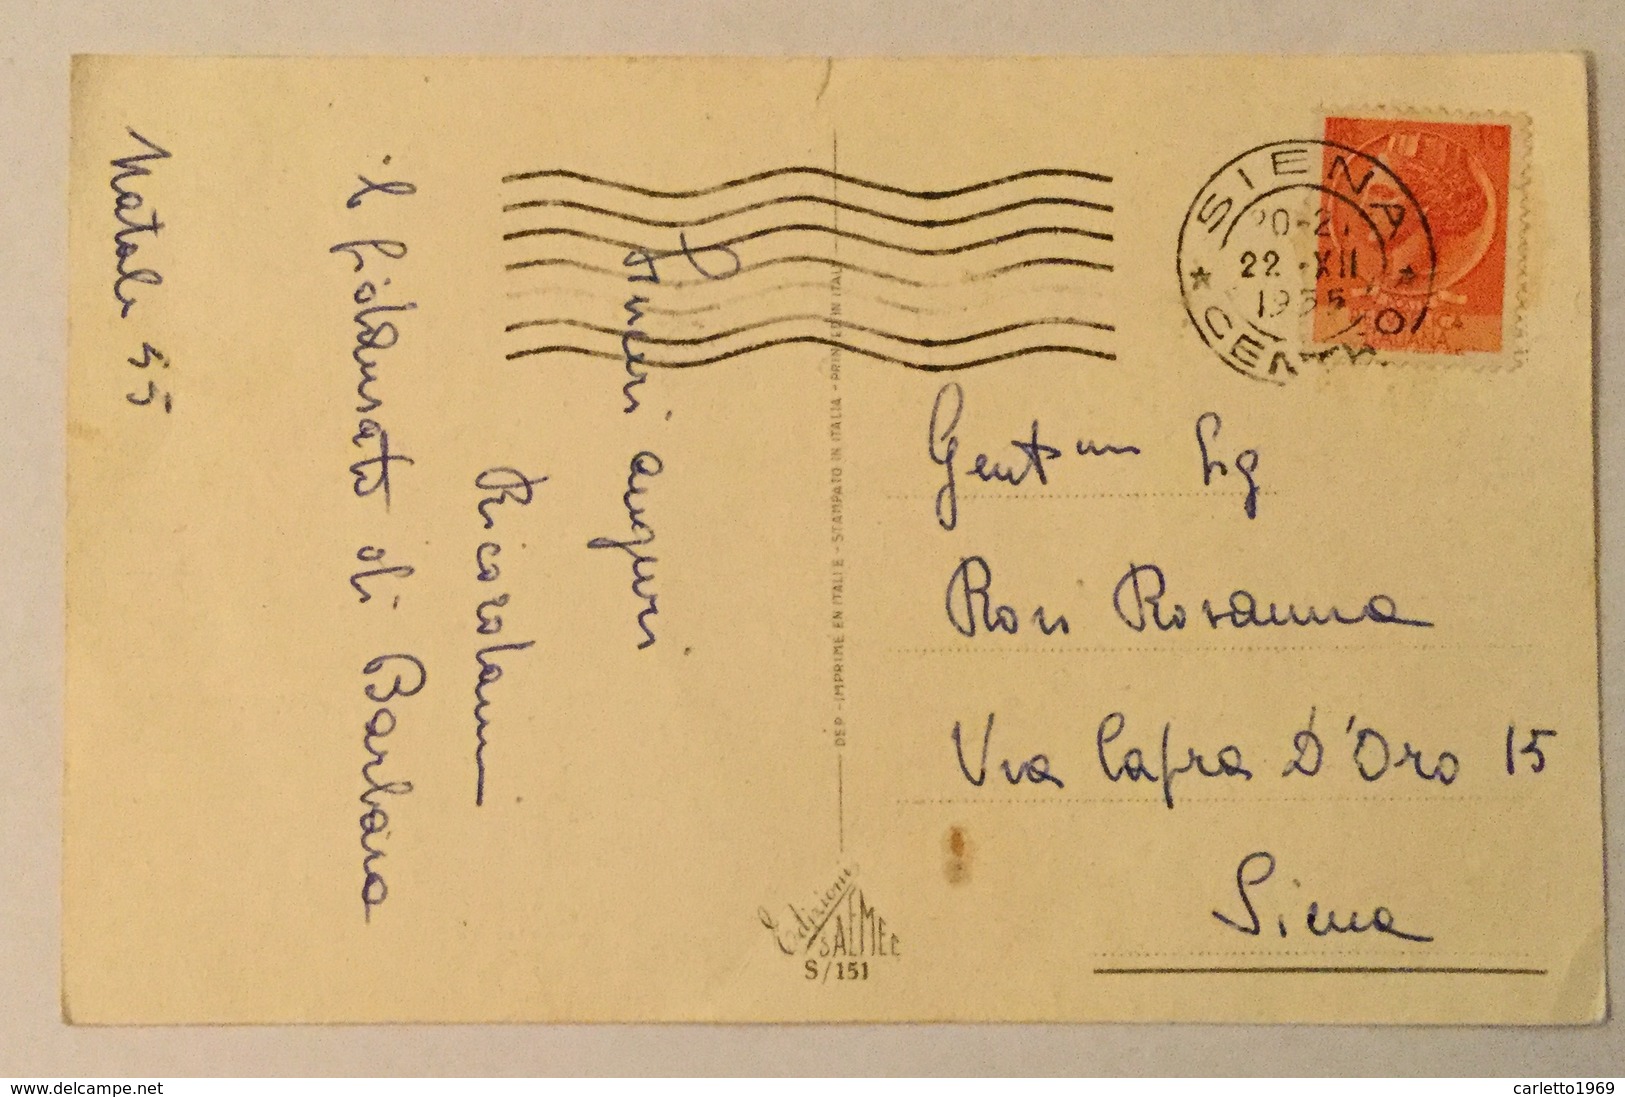 Sinceri auguri
Ricordami
il fidanzato di Barbara
Natale 55
SIENA
20-21
22 · XII
1955
CENTRO
DEP - IMPRIME EN ITALIE - STAMPATO IN ITALIA - PRINTED IN ITALY
Edizioni
SAEMEC
S/151
Gent ma Sig
Rossi Rosanna
Via Capra D'Oro 15
Siena
www.delcampe.net
carletto1969